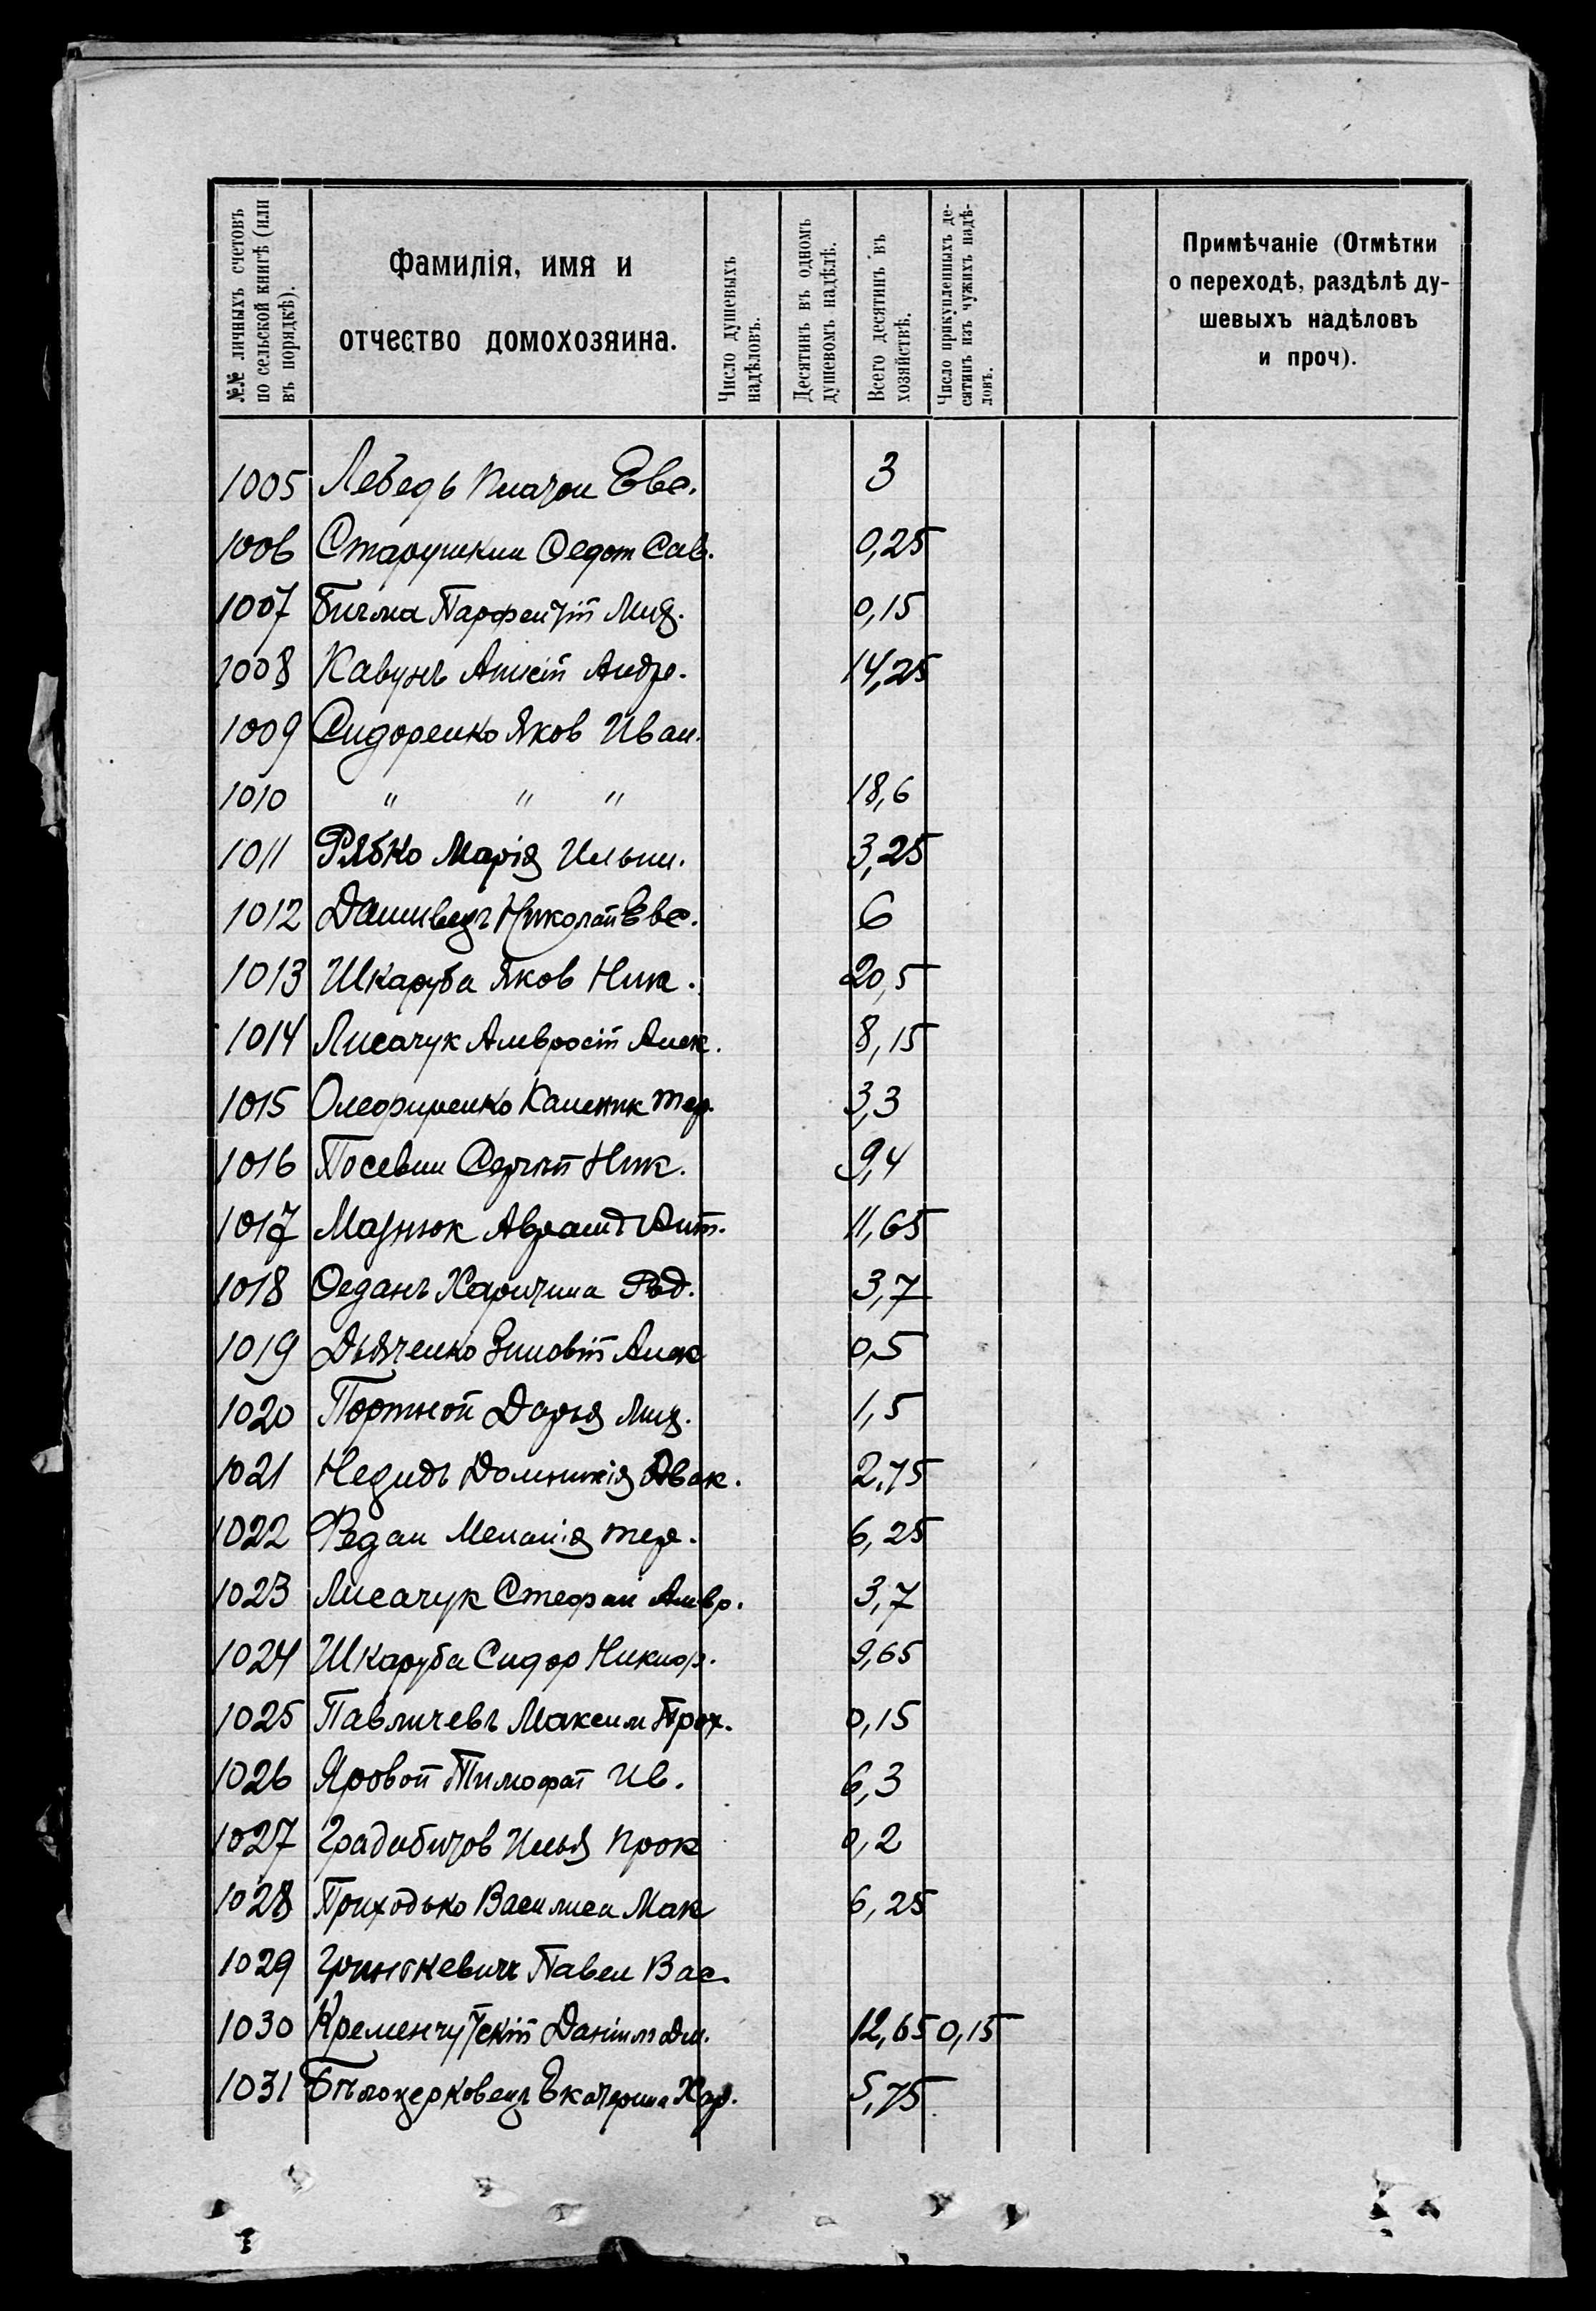 №№ личныхъ счетовъ по сельской книгѣ (или въ порядкѣ).
Фамилія, имя и отчество домохозяина.
Число душевыхъ надѣловъ.
Десятинъ въ одномъ душевомъ надѣлѣ.
Всего десятинъ въ хозяйствѣ.
Число прикупленныхъ десятинъ изъ чужихъ надѣловъ.
Примѣчаніе (Отмѣтки о переходѣ, раздѣлѣ душевыхъ надѣловъ и проч).
1005 Лебедь Платон Евс. 3
1006 Старушкин Федот Сав. 0,25
1007 Бичма Парфентій Мих. 0,15
1008 Кавунъ Андре. 14,25
1009 Сидоренко Яков Иван.
1010 " " " 18,6
1011 Рябко Марія Ильин. 3,25
1012 Дашивецъ Николай Евс. 6
1013 Шкаруба Яков Ник. 20,5
1014 Лисачук Амвросій Алек. 8,15
1015 Олефиренко Каленик Тер. 3,3
1016 Посевин Сергій Ник. 9,4
1017 Мазнюк Аврам Ант. 11,65
1018 Феданъ Харитина Род. 3,7
1019 Дьяченко Зиновій Алек 0,5
1020 Портной Дарья Мих. 1,5
1021 Домникія Авак. 2,75
1022 Федан Меланія Тер. 6,25
1023 Лисачук Стефан Амвр. 3,7
1024 Шкаруба Сидор Никиф. 9,65
1025 Павличевъ Максим Прох. 0,15
1026 Яровой Тимофей Ив. 6,3
1027 Илья Прок 0,2
1028 Приходько Василиса Мак 6,25
1029 Гринкевичъ Павел Вас.
1030 Кременчугскій Даніил Дм. 12,65 0,15
1031 Бѣлоцерковецъ Екатерина Хар. 5,75